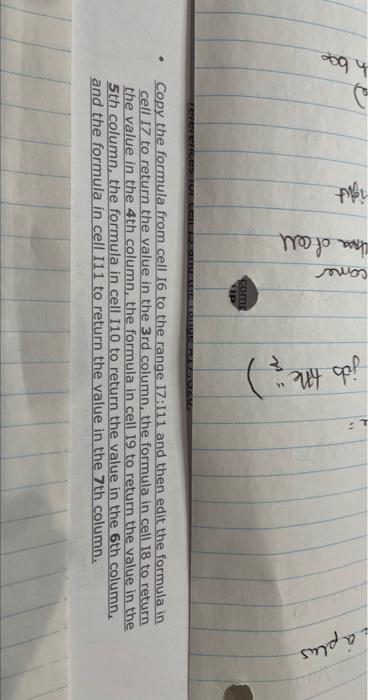 references for cell I5 and the range A17:G20.
• Copy the formula from cell I6 to the range I7:I11 and then edit the formula in
cell I7 to return the value in the 3rd column, the formula in cell I8 to return
the value in the 4th column, the formula in cell I9 to return the value in the
5th column, the formula in cell I10 to return the value in the 6th column,
and the formula in cell I11 to return the value in the 7th column.
a plus
job title "
corner
of cell
right